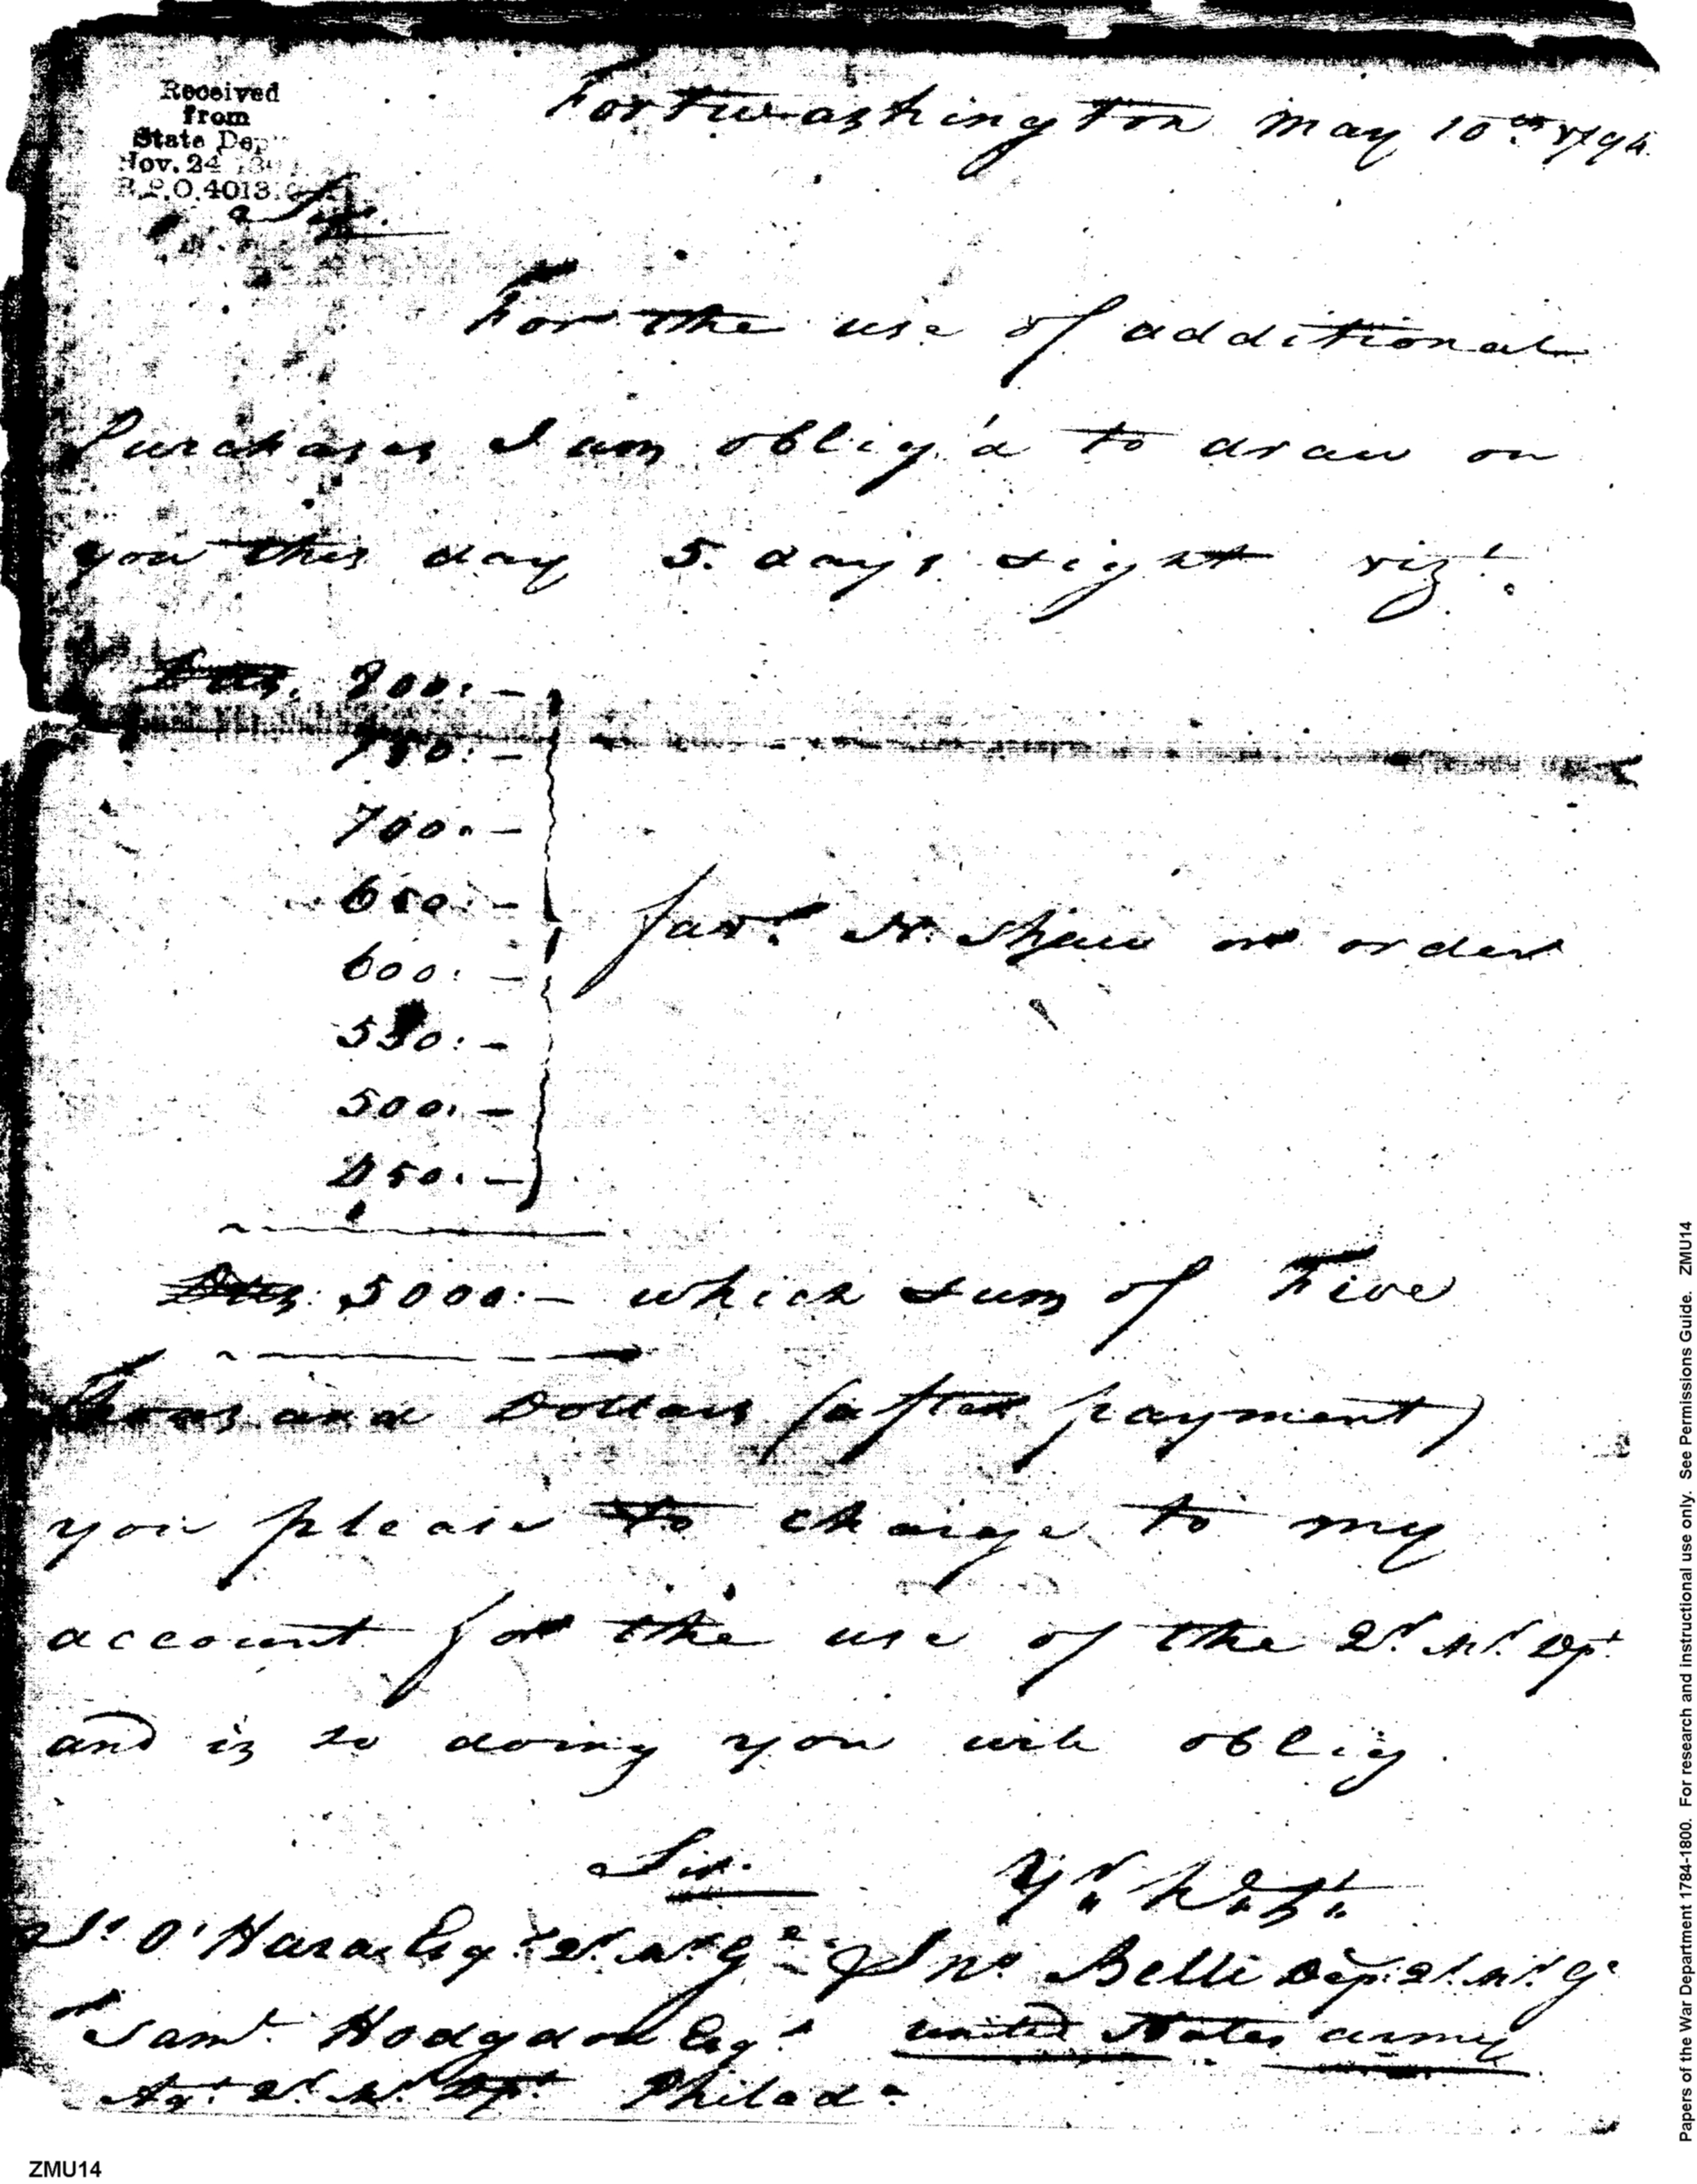 Received
from
State Dep
Nov. 24
R.P.O. 4013.
Fort washington May 10th 1794.
Sir.
For the use of additional
Purchases I am oblig'd to draw on
you this day 5. day's sight vizt.
Dlls. 800:-
750:-
700:-
650:-
600:-
550:-
500:-
450:-
favr. N. Shaw or order
Dlls: 5000:- which sum of Five
Thousand Dollars (after payment)
you please to charge to my
account for the use of the Qr. Mr. Dpt
and in so doing you will oblig
Sir. Yr.
Js. O'Hara Esqr. Qr. Mr. Gl. Jno. Belli Dep: Qr. Mr. Gl
or Saml. Hodgdon Esqr. united States army
Agt. Qr. Mr. Dpt. Philada.
ZMU14
Papers of the War Department 1784-1800. For research and instructional use only. See Permissions Guide. ZMU14